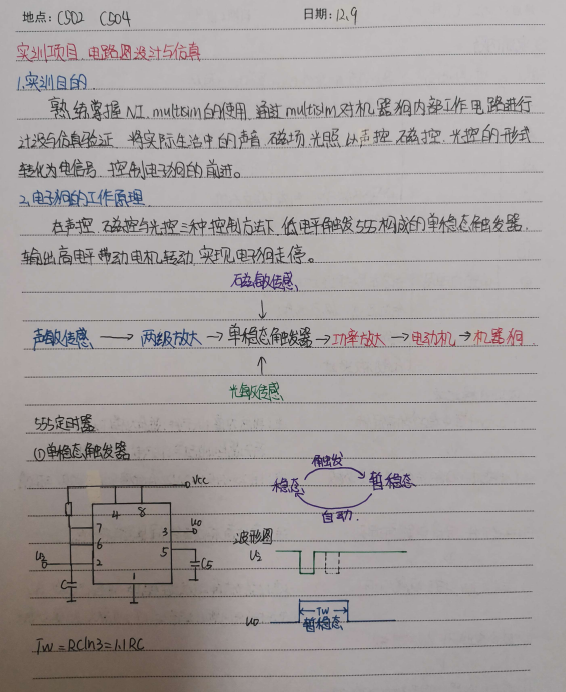 地点：C502 C504 日期：12.9
实训项目：电路图设计与仿真
1.实训目的
熟练掌握NI.multisim的使用，通过multisim对机器狗内部工作电路进行
计设与仿真验证，将实际生活中的声音、磁场、光照以声控、磁控、光控的形式
转化为电信号，控制电子狗的前进。
2.电子狗的工作原理
在声控、磁控与光控三种控制方法下，低电平触发555构成的单稳态触发器，
输出高电平带动电机转动，实现电子狗走停。
磁敏传感
↓
声敏传感 → 两级放大 → 单稳态触发器 → 功率放大 → 电动机 → 机器狗
↑
光敏传感
555定时器
①单稳态触发器
Vcc
4 8
7
6
2
3
5
1
U0
C5
C
触发
稳态 暂稳态
自动
波形图
U2
U0
Tw
暂稳态
Tw=RCln3=1.1RC